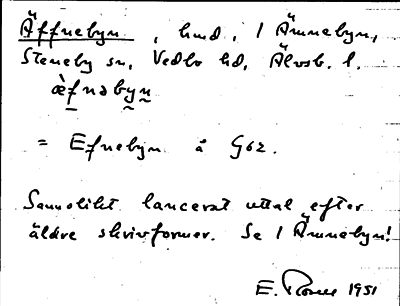 Äffnebyn, hmd, i Ämnebyn,
Steneby sn, Vedbo hd, Älvsb. l.
æ̀fnəbyn
= Efnebyn å G62.
Sannolikt lancerat uttal efter
äldre skrivformer. Se i Ämnebyn!
E. 1951